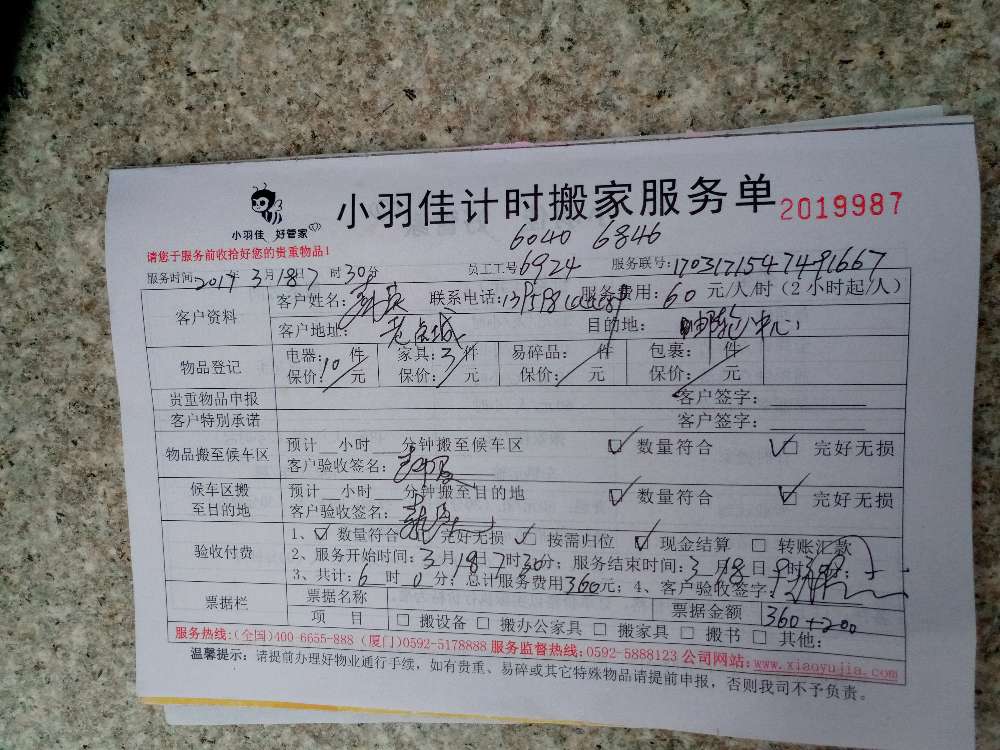 小羽佳 好管家
小羽佳计时搬家服务单 2019987
请您于服务前收拾好您的贵重物品!
6040 6846
服务时间:2017年3月18日7时30分 员工工号6924 服务联号:1703171547491667
客户资料 客户姓名: 联系电话: 服务费用:60元/人/时(2小时起/人)
客户地址: 目的地:邮轮中心
物品登记 电器:10件 家具:3件 易碎品:/件 包裹:/件
保价:/元 保价:/元 保价:/元 保价:/元
贵重物品申报 客户签字:
客户特别承诺 客户签字:
物品搬至候车区 预计__小时__分钟搬至候车区 ☑ 数量符合 ☑ 完好无损
客户验收签名:
候车区搬至目的地 预计__小时__分钟搬至目的地 ☑ 数量符合 ☑ 完好无损
客户验收签名:
验收付费 1、☑ 数量符合 ☑ 完好无损 ☑ 按需归位 ☑ 现金结算 □ 转账汇款
2、服务开始时间:3月18日7时30分; 服务结束时间:3月18日9时30分;
3、共计:6时0分;总计服务费用360元;4、客户验收签字:
票据栏 票据名称 票据金额 360+200
项 目 □ 搬设备 □ 搬办公家具 □ 搬家具 □ 搬书 □ 其他:
服务热线:(全国)400-6655-888 (厦门)0592-5178888 服务监督热线:0592-5888123 公司网站:www.xiaoyujia.com
温馨提示:请提前办理好物业通行手续,如有贵重、易碎或其它特殊物品请提前申报,否则我司不予负责。